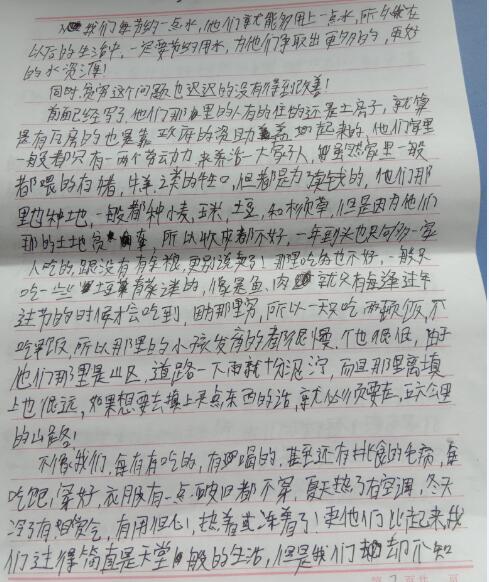 我们每节约一点水，他们就能够多用上一点水，所以我在
以后的生活中，一定要节约用水，为他们争取出更多的，更好
的水资源！
同时，贫穷这个问题也迟迟的没有得到改善！
前面已经写了他们那里的人有的住的还是土房子，就算
是有瓦房的也是靠政府的资助盖起来的，他们家里
一般都只有一两个劳动力来养活一大家子人，虽然家里一般
都喂的有猪，牛，羊之类的牲口，但都是为卖钱的，他们那
里也种地，一般都种小麦，玉米，土豆，和柳草，但是因为他们
那的土地贫，所以收成都不好，一年到头也只何多一家
人吃的，跟没有有余粮，更别说卖了！那里吃的也不好，一般只
吃一些土豆有菜之类的，像是鱼，肉就只有每逢过年
过节的时候才会吃到，因为那里穷，所以一天只吃两顿饭，不
吃早饭，所以那里的小孩发育的都很慢，个也很低，由于
他们那里是山区，道路一下雨就十分泥泞，而且那里离填
上也很远，如果想要去填上买点东西的话，就必须要走，五六公里
的山路！
不像我们，每有有吃的，有喝的，甚至还有挑食的毛病，每
吃饱，穿好，衣服有一点破旧都不穿，夏天热了有空调，冬天
冷了有暖气，有用担心，热着或冻着了！更他们比起来，我
们过得简直是天堂一般的生活，但是我们却不知
第 页 共 页